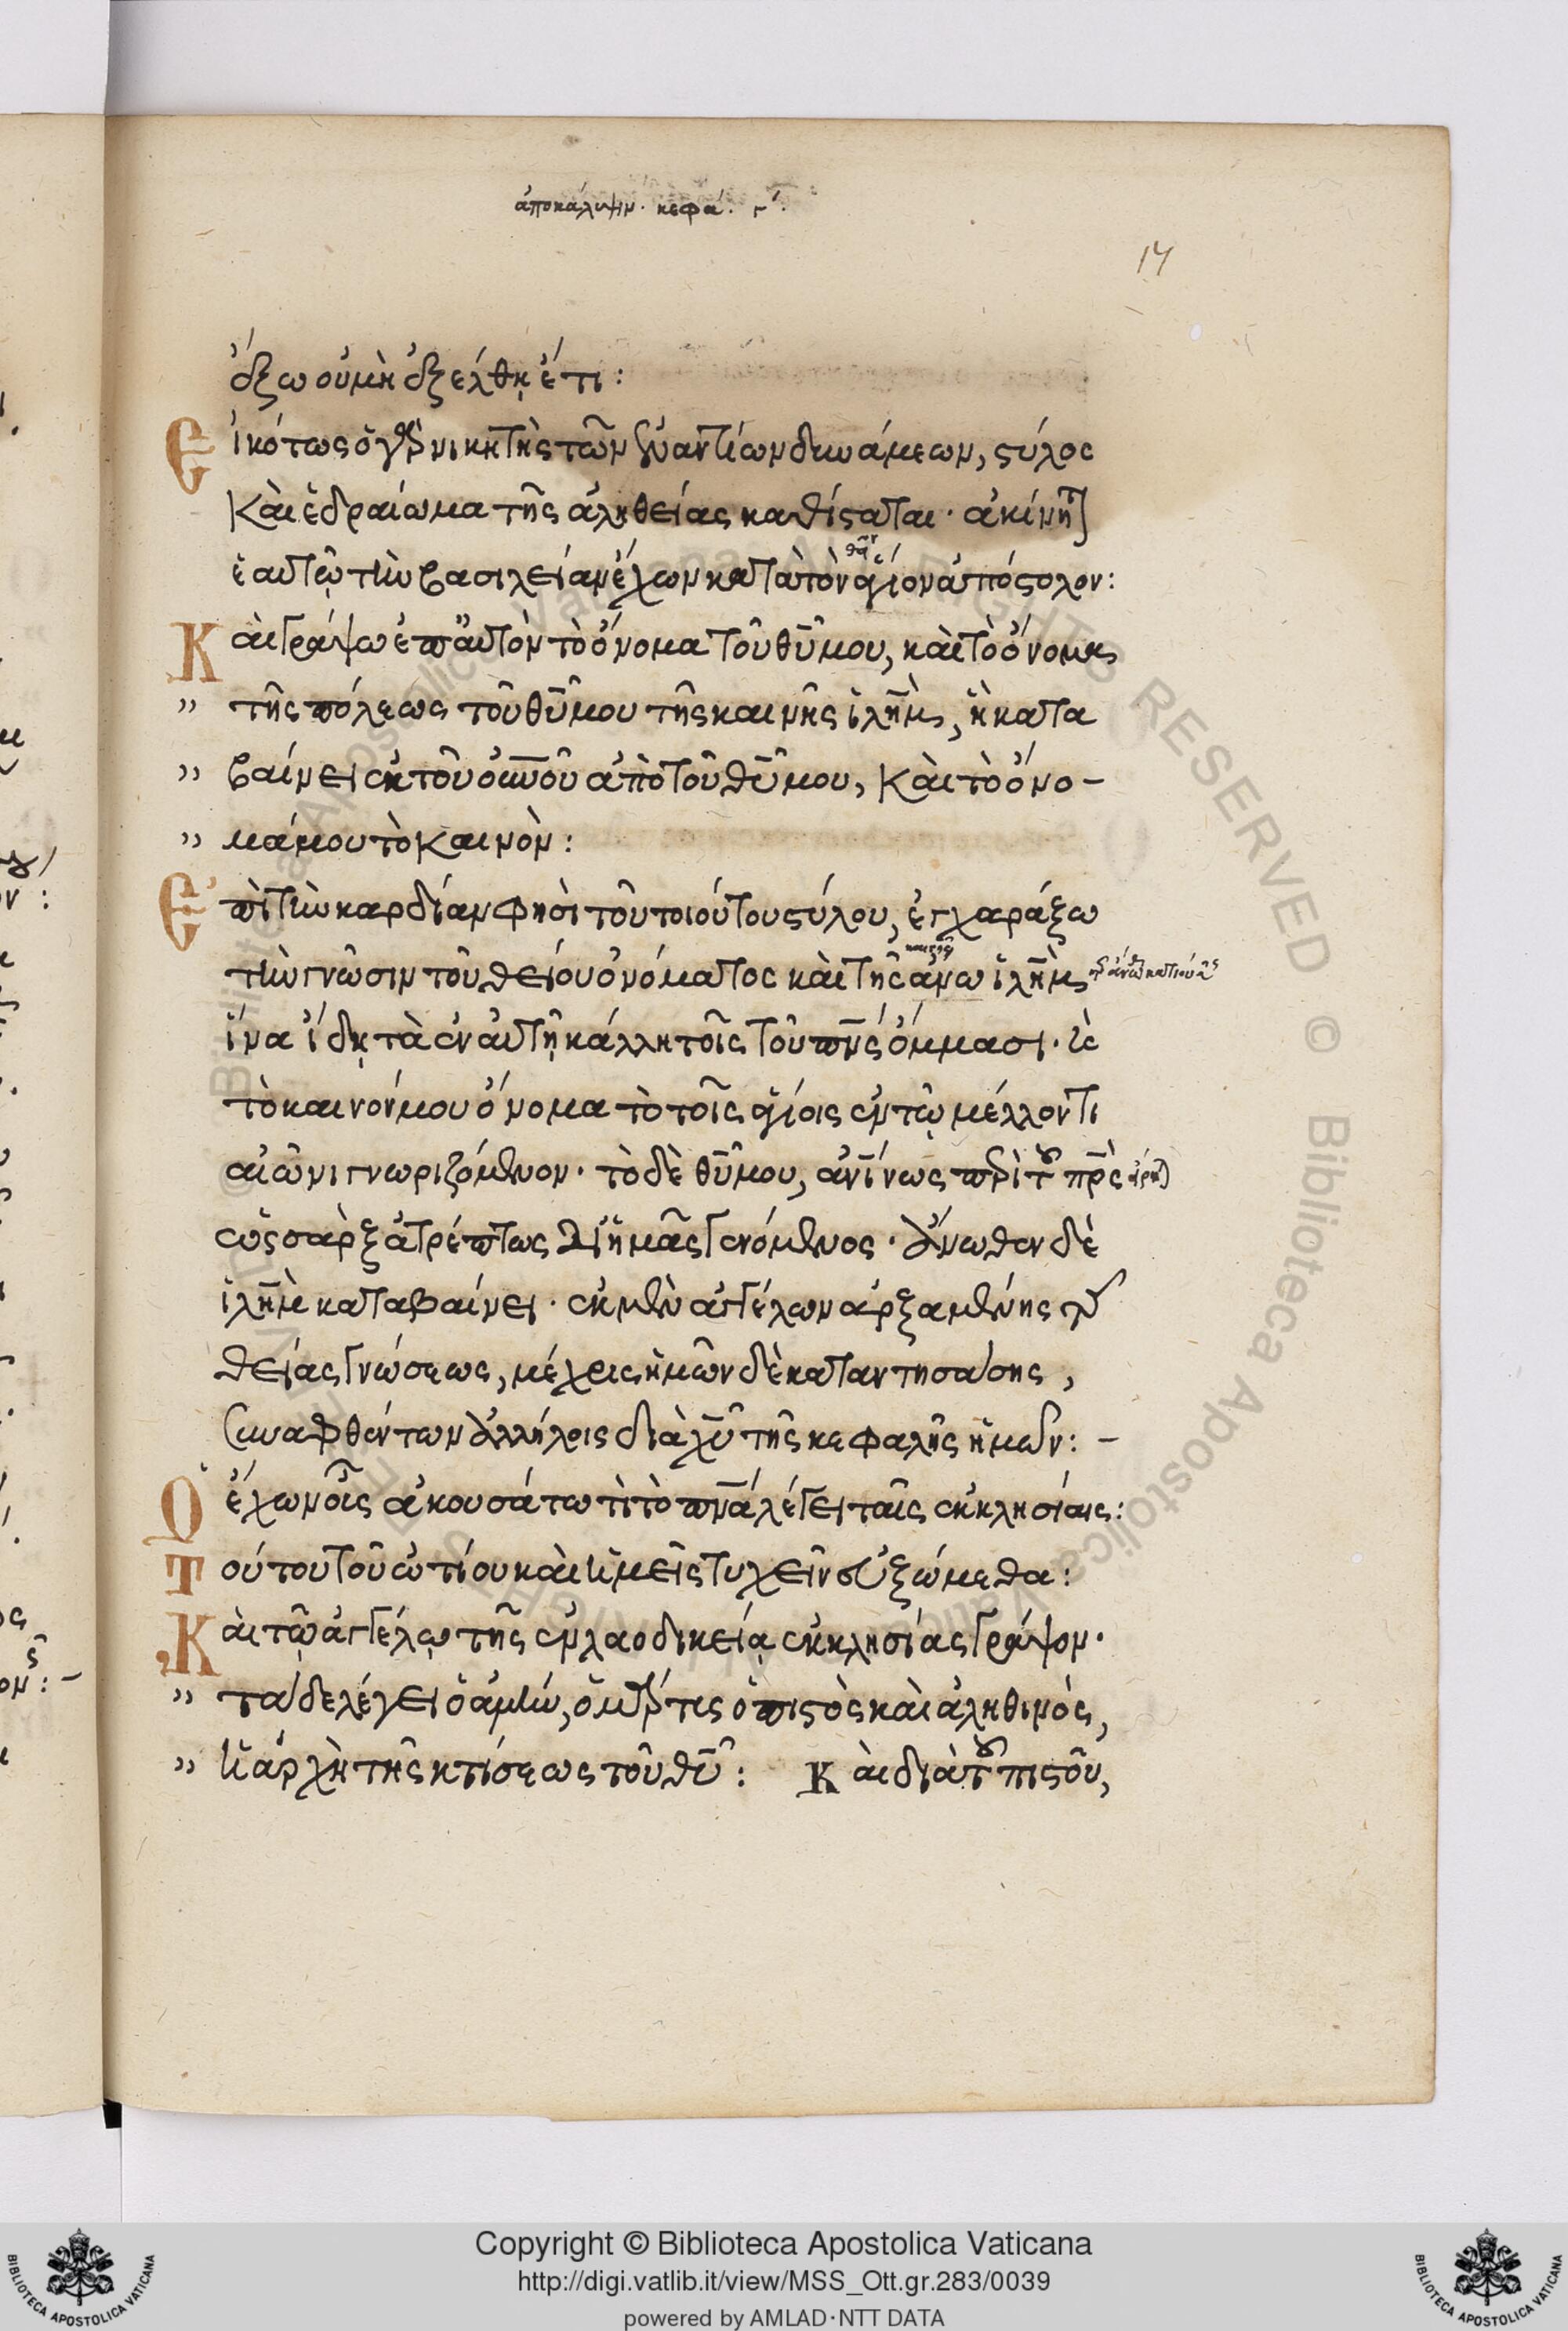 ἀποκάλυψιν. κεφά. γ΄.
17
ἔξω οὐ μὴ ἐξέλθῃ ἔτι:
Εἰκότως ὁ γὰρ νικητὴς τῶν ἐναντίων δυνάμεων, στύλος
καὶ ἑδραίωμα τῆς ἀληθείας καθίσταται· ἀκίνητ
ἑαυτῷ τὴν βασιλείαν ἔχων κατὰ τὸν ἅγιον ἀπόστολον:
Καὶ γράψω ἐπ' αὐτὸν τὸ ὄνομα τοῦ θῦ μου, καὶ τὸ ὄνομα
" τῆς πόλεως τοῦ θῦ μου τῆς καινῆς ἰλὴμ, ἣ κατα
" βαίνει ἐκ τοῦ οὐνοῦ ἀπὸ τοῦ θῦ μου, καὶ τὸ ὄνο-
" μά μου τὸ καινὸν:
Ἐπὶ τὴν καρδίαν φησὶ τοῦ τοιούτου στύλου, ἐγχαράξω
τὴν γνῶσιν τοῦ θείου ὀνόματος καὶ τῆς ἄνω ἰλὴμ
ἵνα ἴδῃ τὰ ἐν αὐτῇ κάλλη τοῖς τοῦ πνς ὄμμασι· καὶ
τὸ καινόν μου ὄνομα τὸ τοῖς ἁγίοις ἐν τῷ μέλλοντι
αἰῶνι γνωριζόμενον· τὸ δὲ θῦ μου, ἀνίνως περὶ τοῦ πρς
ὡς σαρξ ἀτρέπτως δι' ἡμᾶς γενόμενος· ἄνωθεν δὲ
ἰλὴμ καταβαίνει· ἐκ μὲν ἀγγέλων ἀρξαμένης τῆς
θείας γνώσεως, μέχρις ἡμῶν δὲ καταντησάσης,
συναφθέντων ἀλλήλοις διὰ χῦ τῆς κεφαλῆς ἡμῶν: -
Ὁ ἔχων οὖς ἀκουσάτω τὶ τὸ πνα λέγει ταῖς ἐκκλησίαις:
Τούτου τοῦ ὠτίου καὶ ἡμεῖς τυχεῖν εὐξώμεθα:
Καὶ τῷ ἀγγέλῳ τῆς ἐν λαοδικείᾳ ἐκκλησίας γράψον·
" τάδε λέγει ὁ ἀμὴν, ὁ μάρτυς ὁ πιστὸς καὶ ἀληθινὸς,
" ἡ ἀρχὴ τῆς κτίσεως τοῦ θῦ: Καὶ διὰ τοῦ πιστοῦ,
Copyright © Biblioteca Apostolica Vaticana
http://digi.vatlib.it/view/MSS_Ott.gr.283/0039
powered by AMLAD·NTT DATA